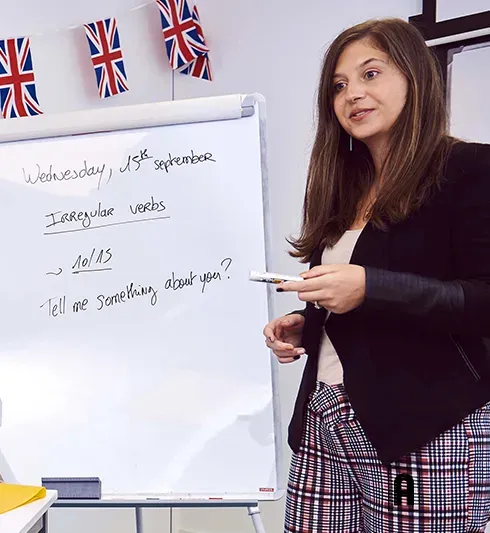 Wednesday, 15th september
Irregular verbs
~ 10/15
Tell me something about you?
A